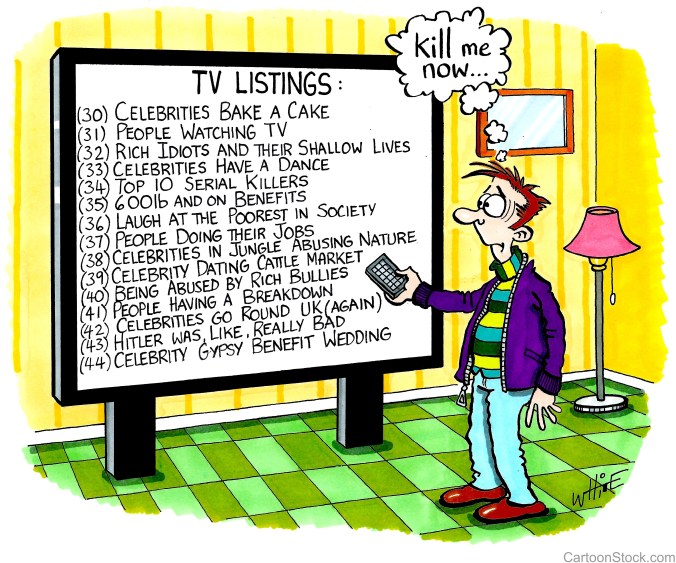 Kill me
now...
TV LISTINGS:
(30) CELEBRITIES BAKE A CAKE
(31) PEOPLE WATCHING TV
(32) RICH IDIOTS AND THEIR SHALLOW LIVES
(33) CELEBRITIES HAVE A DANCE
(34) TOP 10 SERIAL KILLERS
(35) 600lb AND ON BENEFITS
(36) LAUGH AT THE POOREST IN SOCIETY
(37) PEOPLE DOING THEIR JOBS
(38) CELEBRITIES IN JUNGLE ABUSING NATURE
(39) CELEBRITY DATING CATTLE MARKET
(40) BEING ABUSED BY RICH BULLIES
(41) PEOPLE HAVING A BREAKDOWN
(42) CELEBRITIES GO ROUND UK (AGAIN)
(43) HITLER WAS, LIKE, REALLY BAD
(44) CELEBRITY GYPSY BENEFIT WEDDING
WHiTE
CartoonStock.com